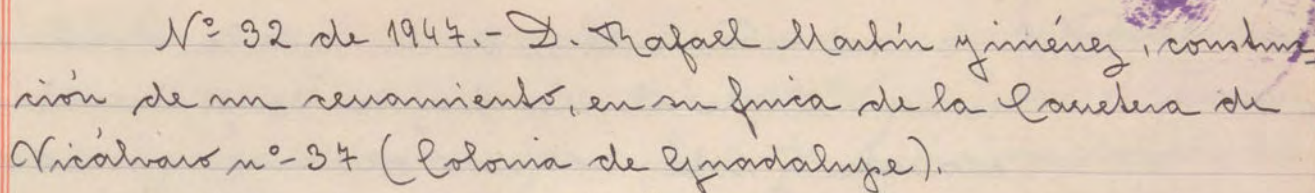 Nº 32 de 1947.- D. Rafael Martín Jiménez, construc-
ción de un cerramiento, en su finca de la Carretera de
Vicálvaro nº-37 (Colonia de Guadalupe).